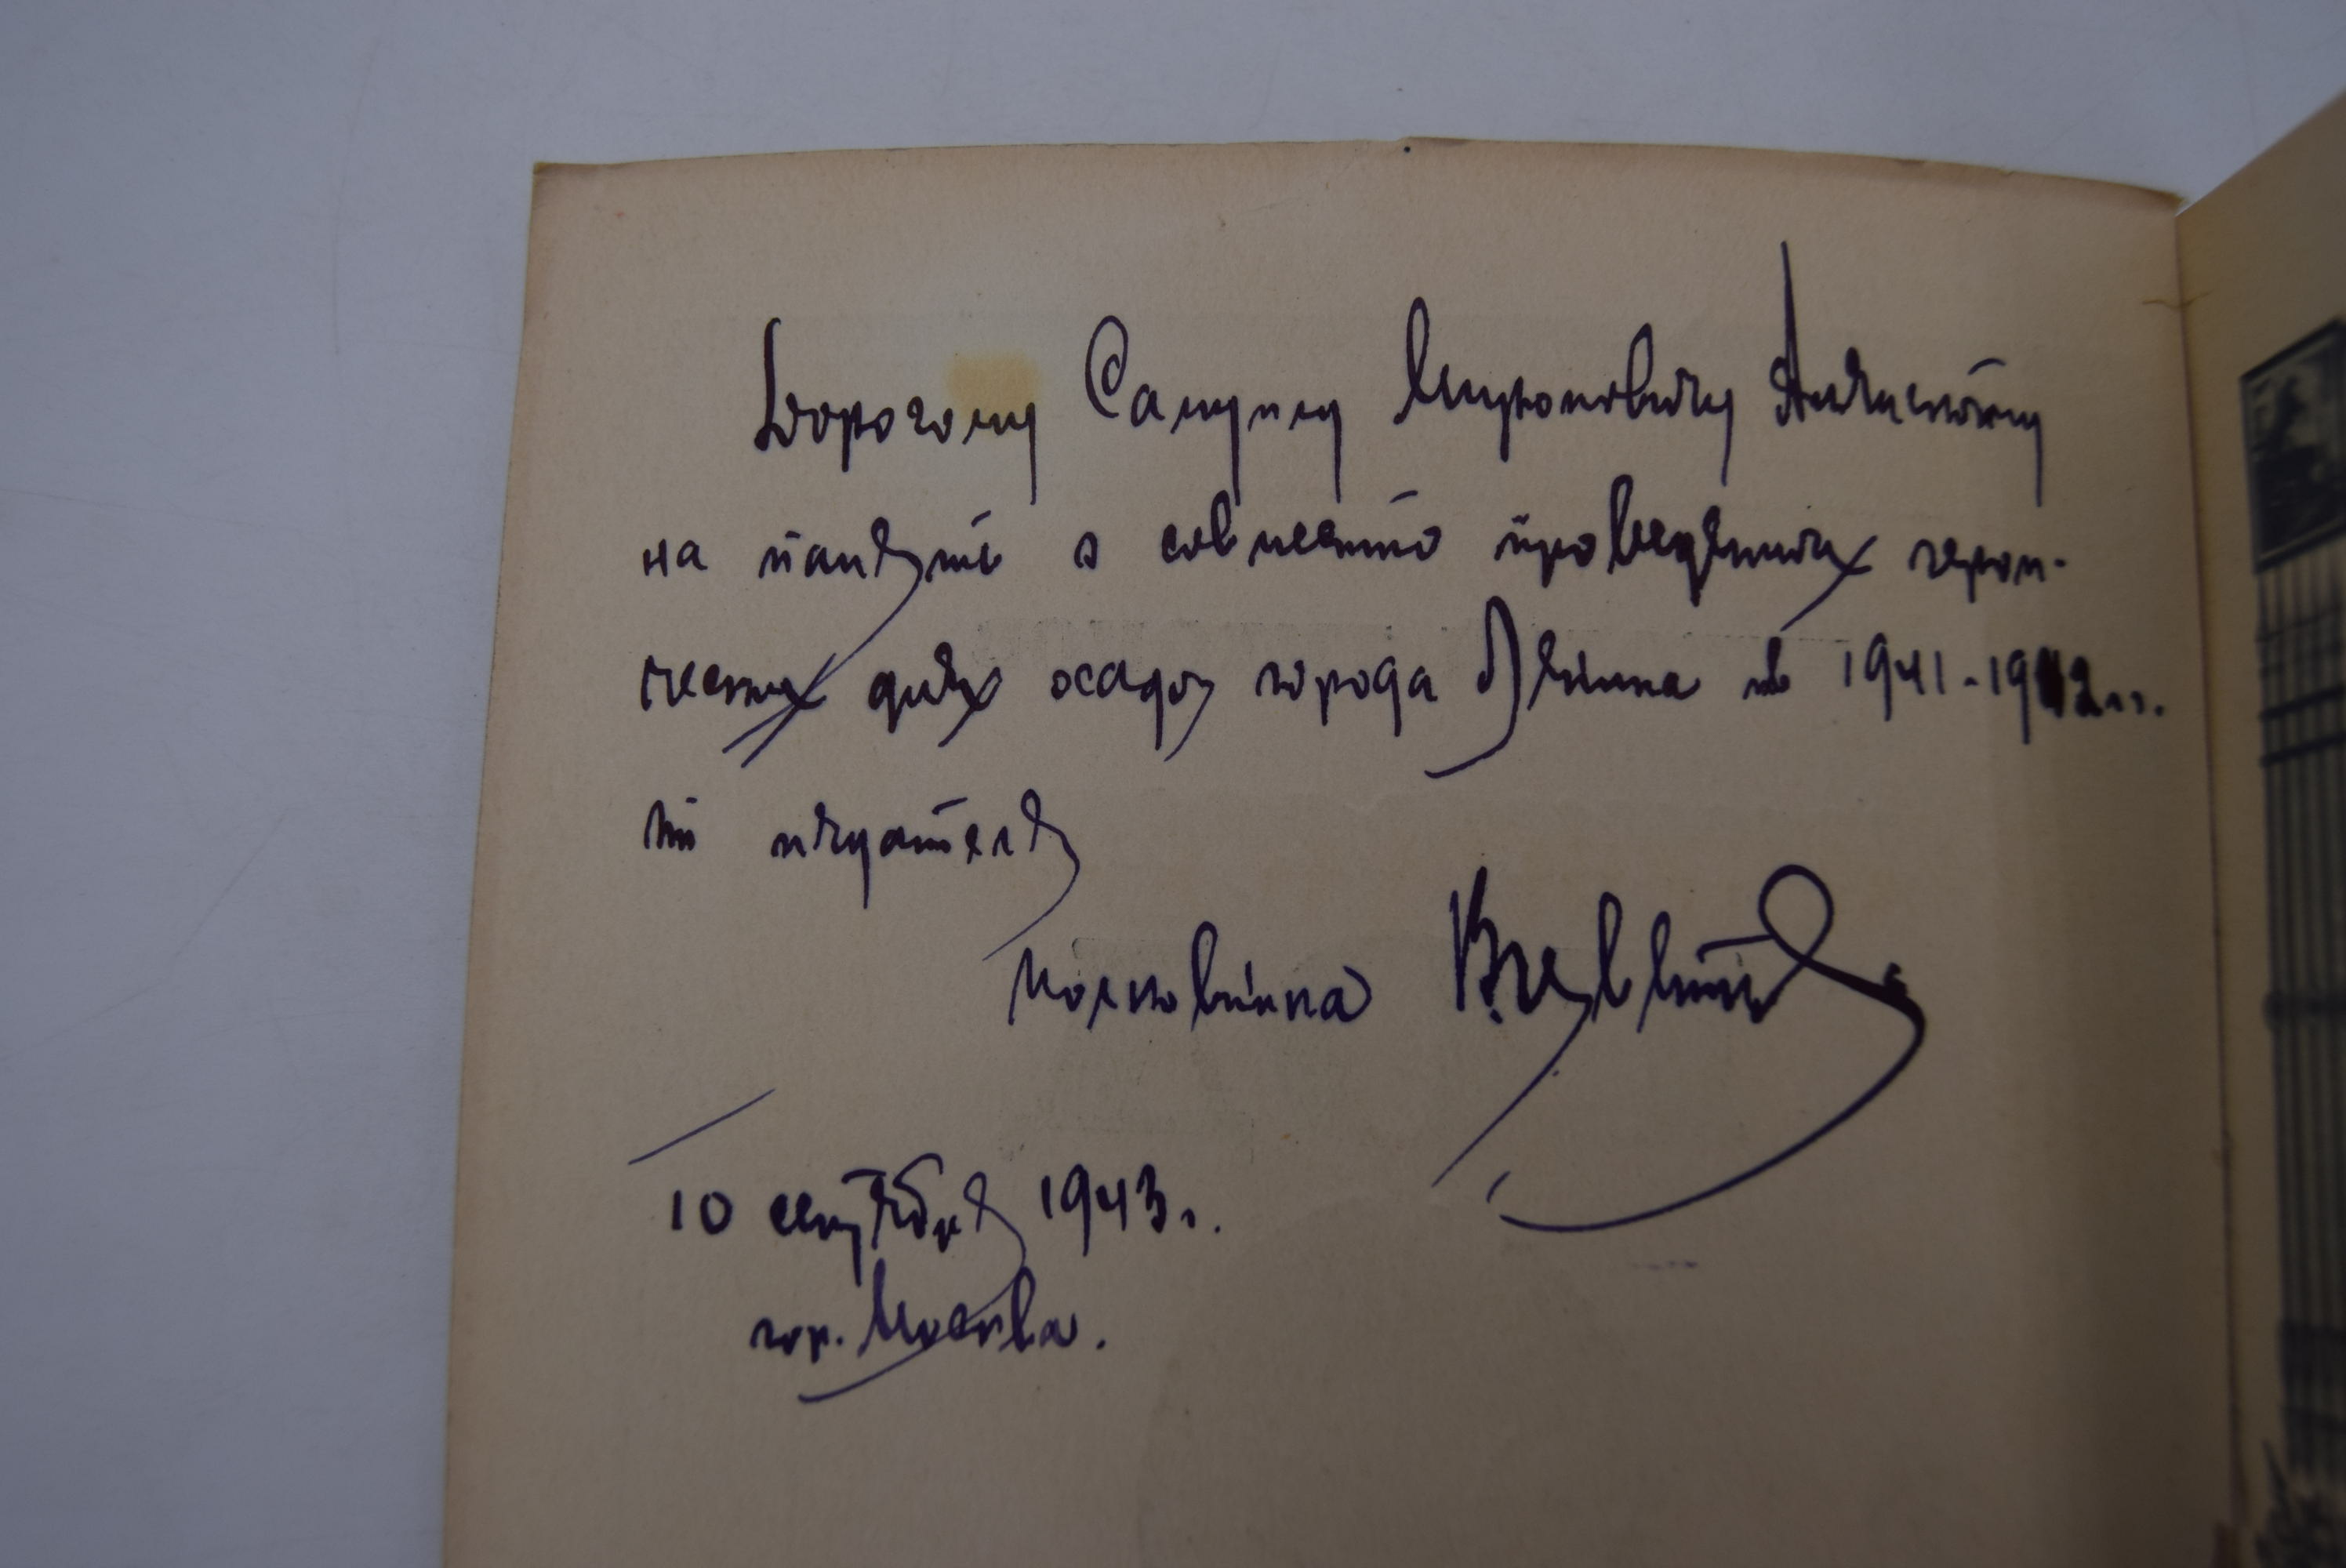 Дорогому Самуилу Мироновичу
на память о совместно проведенных герои-
ческих днях осады города Ленина в 1941-1942 г.г.
от издателя
полковника
10 сентября 1943 г.
гор. Москва.